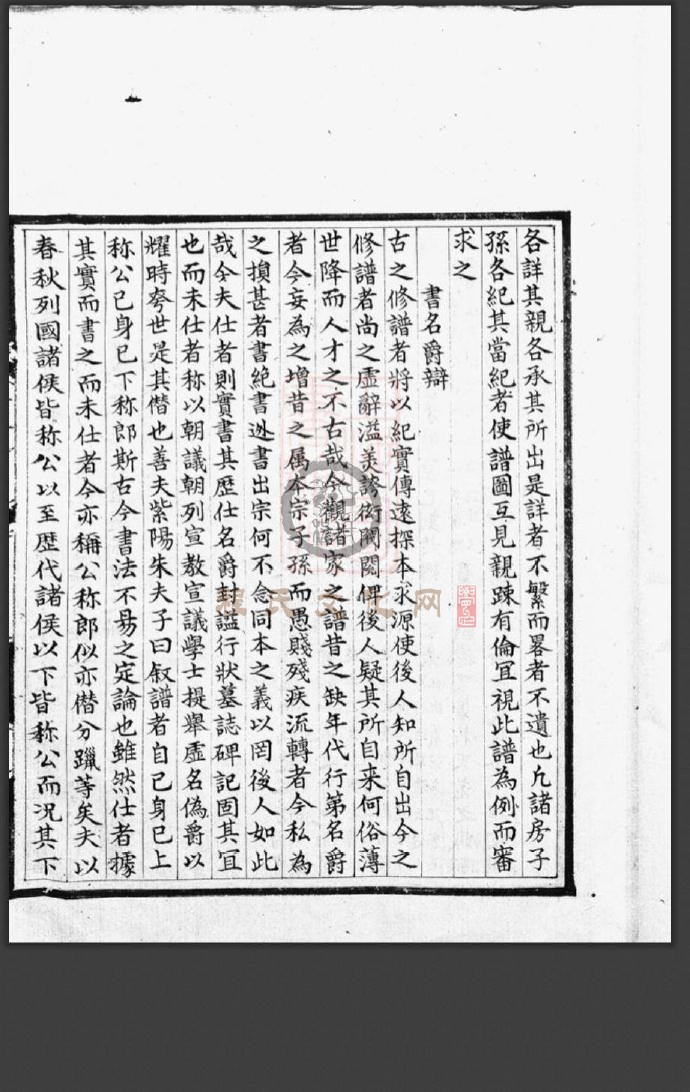 各詳其親各承其所出是詳者不繁而畧者不遺也凢諸房子
孫各紀其當紀者使譜圖互見親踈有倫冝視此譜為例而審
求之
書名爵辯
古之修譜者將以紀實傳遠探本求源使後人知所自出今之
修譜者尚之虛辭溢美誇衒閥閱俾後人疑其所自来何俗薄
世降而人才之不古哉今觀諸家之譜昔之缺年代行第名爵
者今妄為之增昔之属本宗子孫而愚賤殘疾流轉者今私為
之損甚者書絶書逊書出宗何不念同本之義以罔後人如此
哉今夫仕者則實書其歴仕名爵封謚行狀墓誌碑記固其冝
也而未仕者称以朝議朝列宣教宣議學士提舉虛名偽爵以
耀時夸世是其僭也善夫紫陽朱夫子曰叙譜者自已身已上
称公已身已下称郎斯古今書法不易之定論也雖然仕者據
其實而書之而未仕者今亦稱公称郎似亦僭分躐等矣夫以
春秋列國諸侯皆称公以至歴代諸侯以下皆称公而况其下
程氏文化网